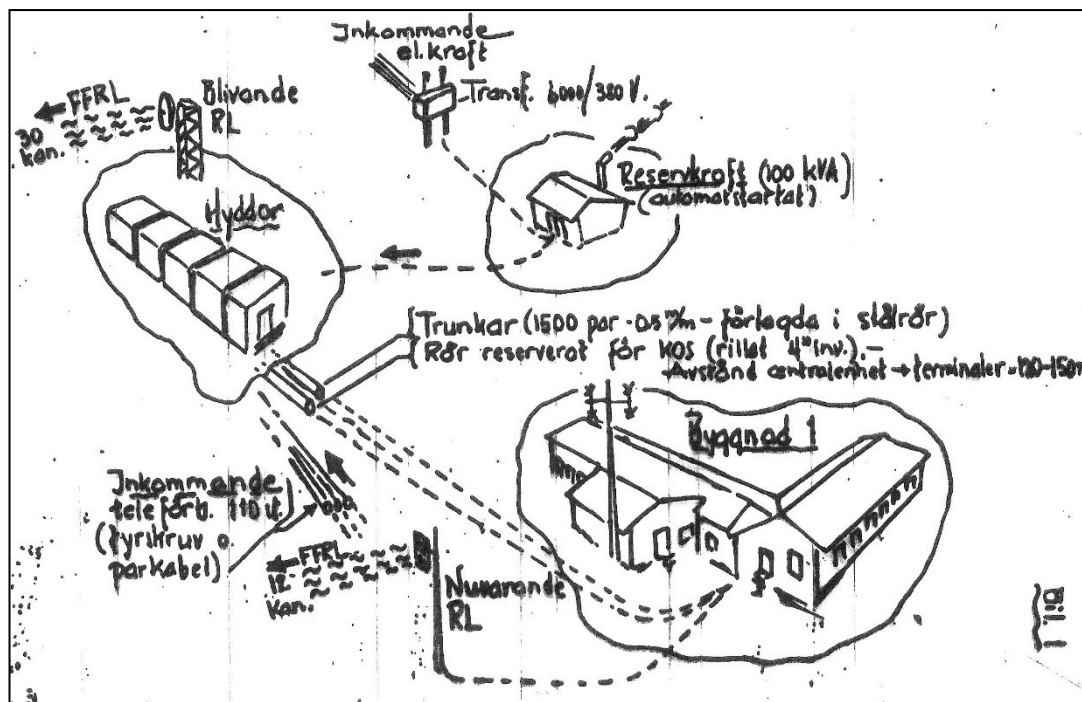 Inkommande
el.kraft
Transf. 6000/380 V.
FFRL
30
kan.
Blivande
RL
Reservkraft (100 kVA)
(automatstartat)
Hyddor
Trunkar (1500 par -0.5 m/m - förlagda i stålrör)
Rör reserverat för KOS (rillat 4" inv.).-
Avstånd centralenhet → terminaler =120-150m
Byggnad 1
Inkommande
teleförb. 110 st.
(fyrskruv o.
parkabel)
FFRL
12
kan.
Nuvarande
RL
Bil. 1